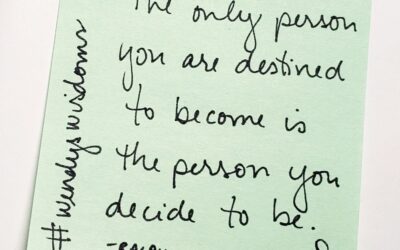 the only person
you are destined
to become is
the person you
decide to be.
#wendyswisdoms